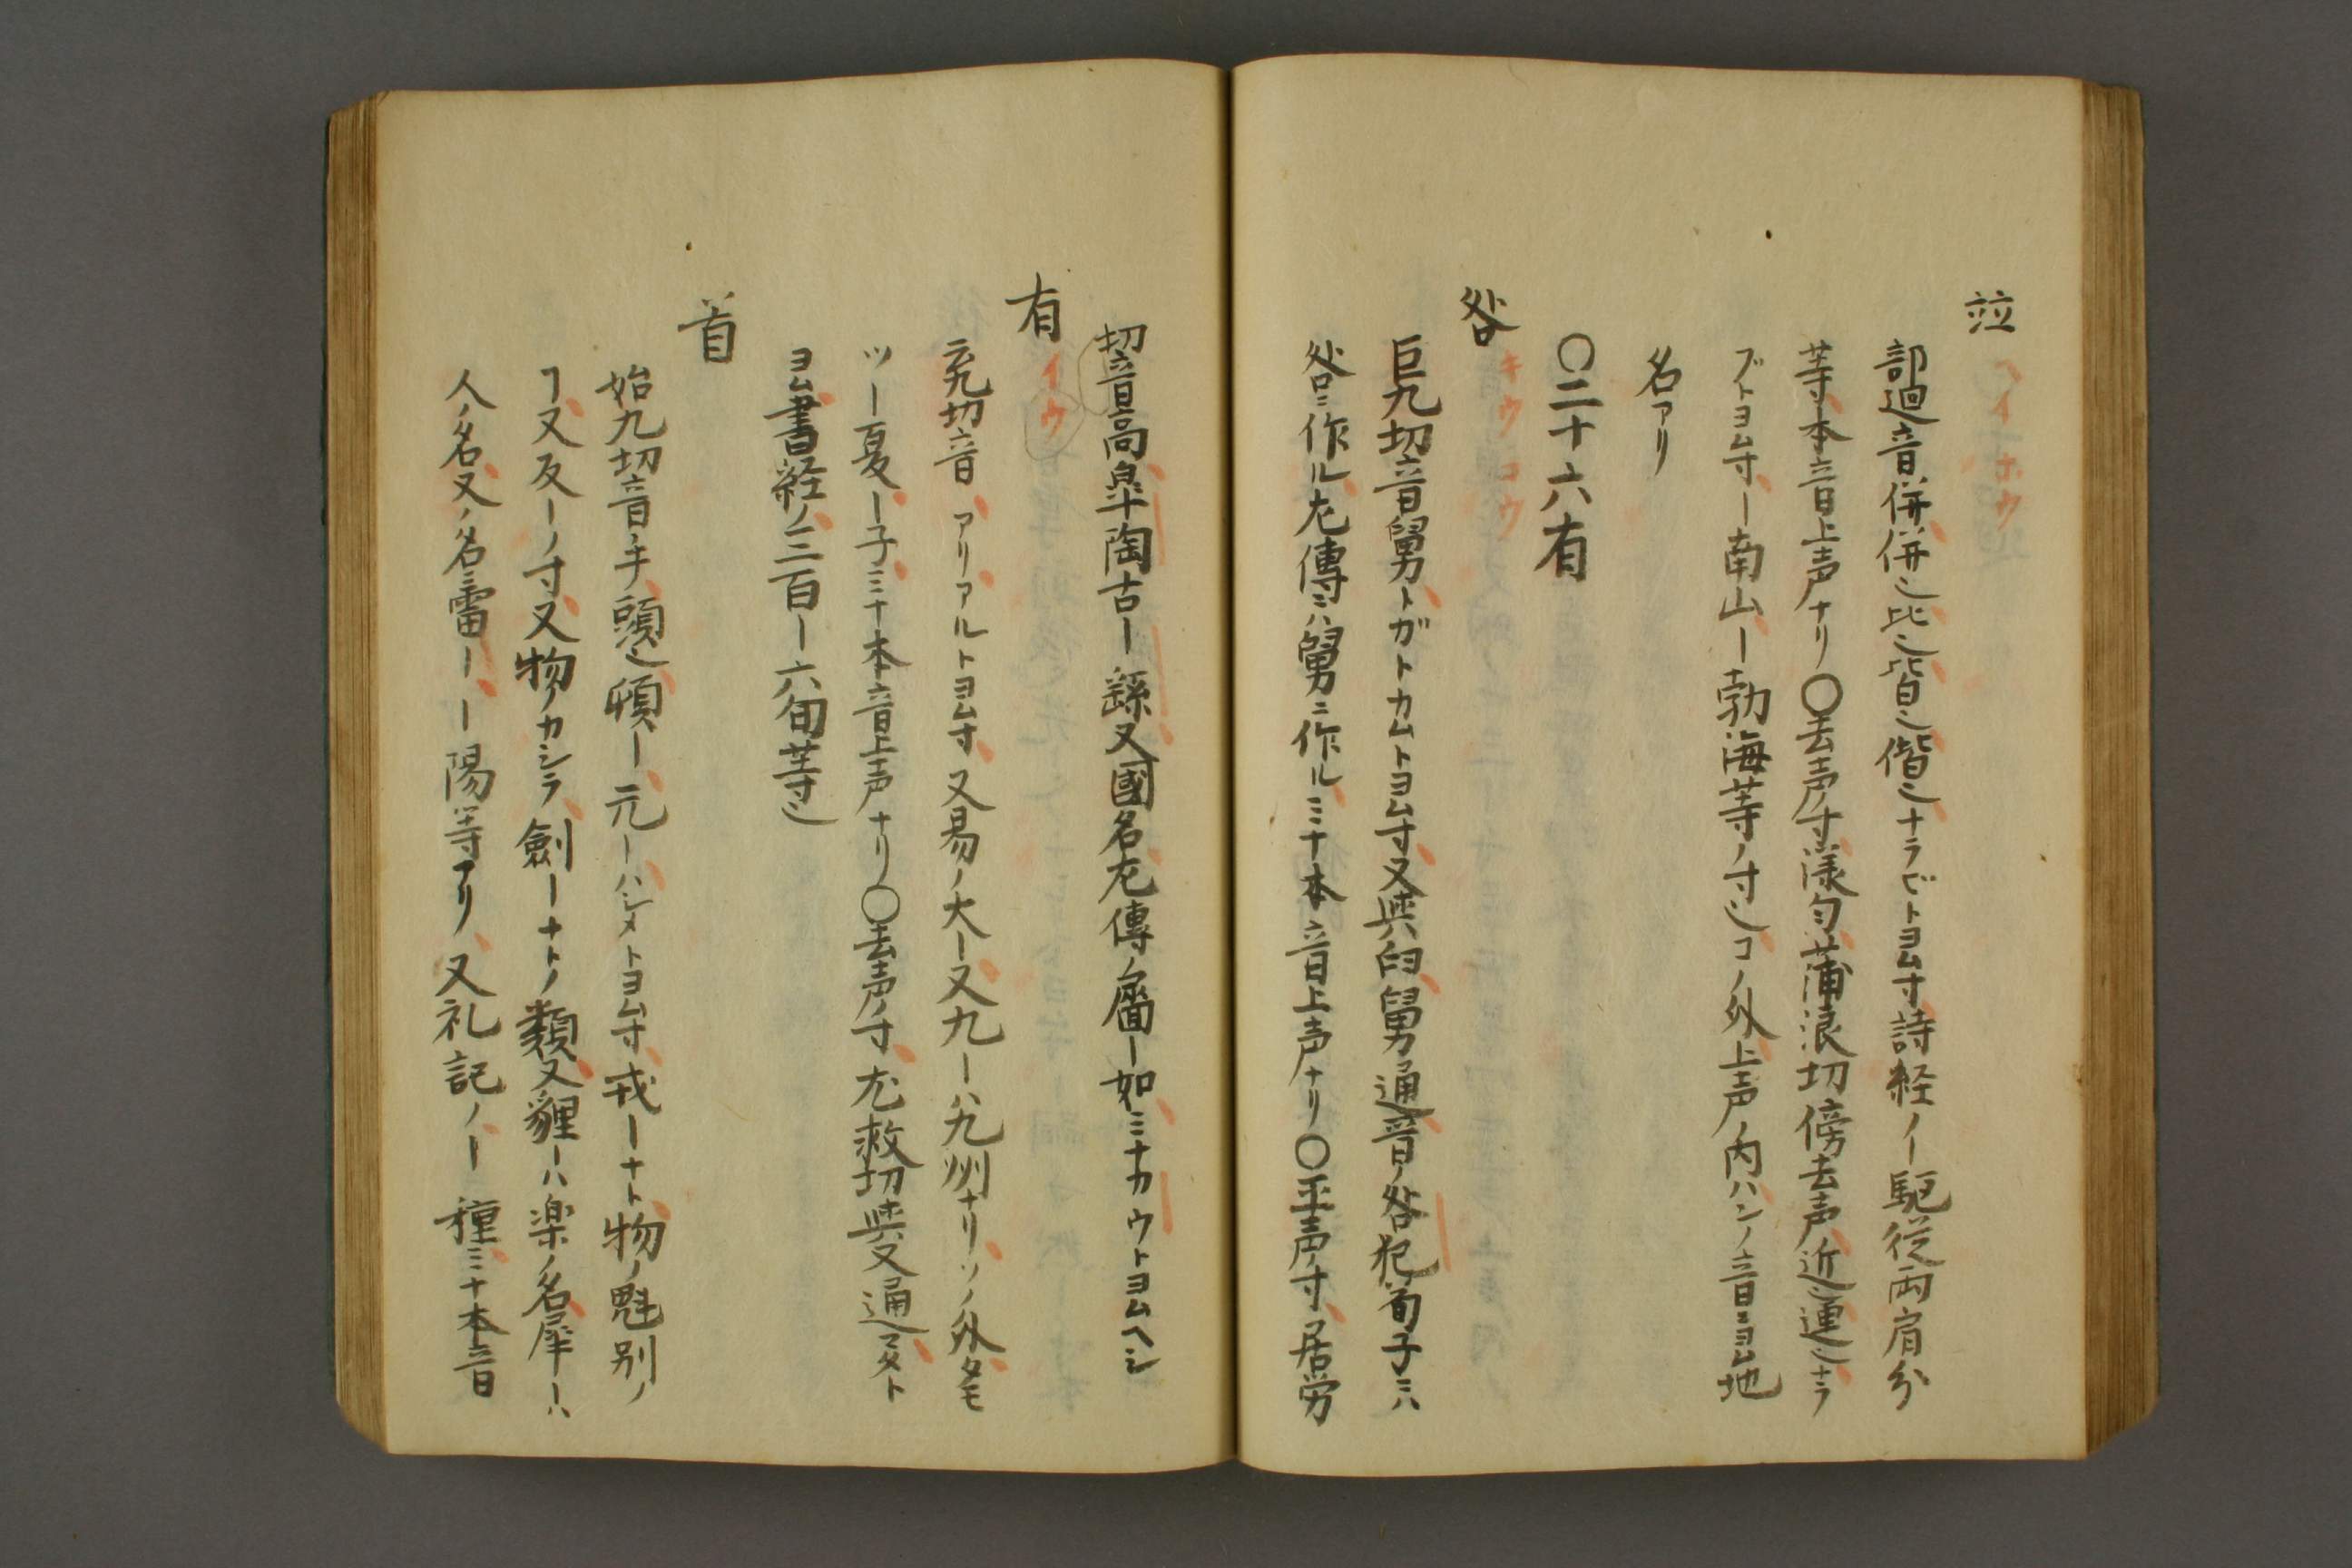 竝 ヘイホウ
部迴音、併併也比也皆也偕也ナラビトヨム寸詩経ノ—駈従両肩分
等本音上声ナリ〇去声ノ寸漾匀蒲浪切傍去声近也連也ナラ
ブトヨム寸—南山—勃海等ノ寸也コノ外上声ノ内ハンノ音ニヨム地
名アリ
〇二十六有
咎 キウコウ
巨九切音舅トガトカムトヨム寸又與臼舅通音ノ咎犯荀子ニハ
咎ニ作ル左傳ニハ舅ニ作ルミナ本音上声ナリ〇平声ノ寸居労
切音高皐陶古—繇又國名左傳ノ廧—如ミナカウトヨムヘシ
有 イウ
云九切音 アリアルトヨム寸又易ノ大—又九—ハ九州ナリソノ外タモ
ツ—夏—子ミナ本音上声ナリ〇去声ノ寸尤救切與又通マタト
ヨム書経ノ三百—六旬等也
首
始九切音手頭也頓—元—ハシメトヨム寸戎—ナト物ノ魁別ノ
ヿ又反—ノ寸又物ノカシラ劍—ナトノ類又貍—ハ楽ノ名犀—ハ
人ノ名又ノ名雷——陽等アリ又礼記ノ—種ミナ本音